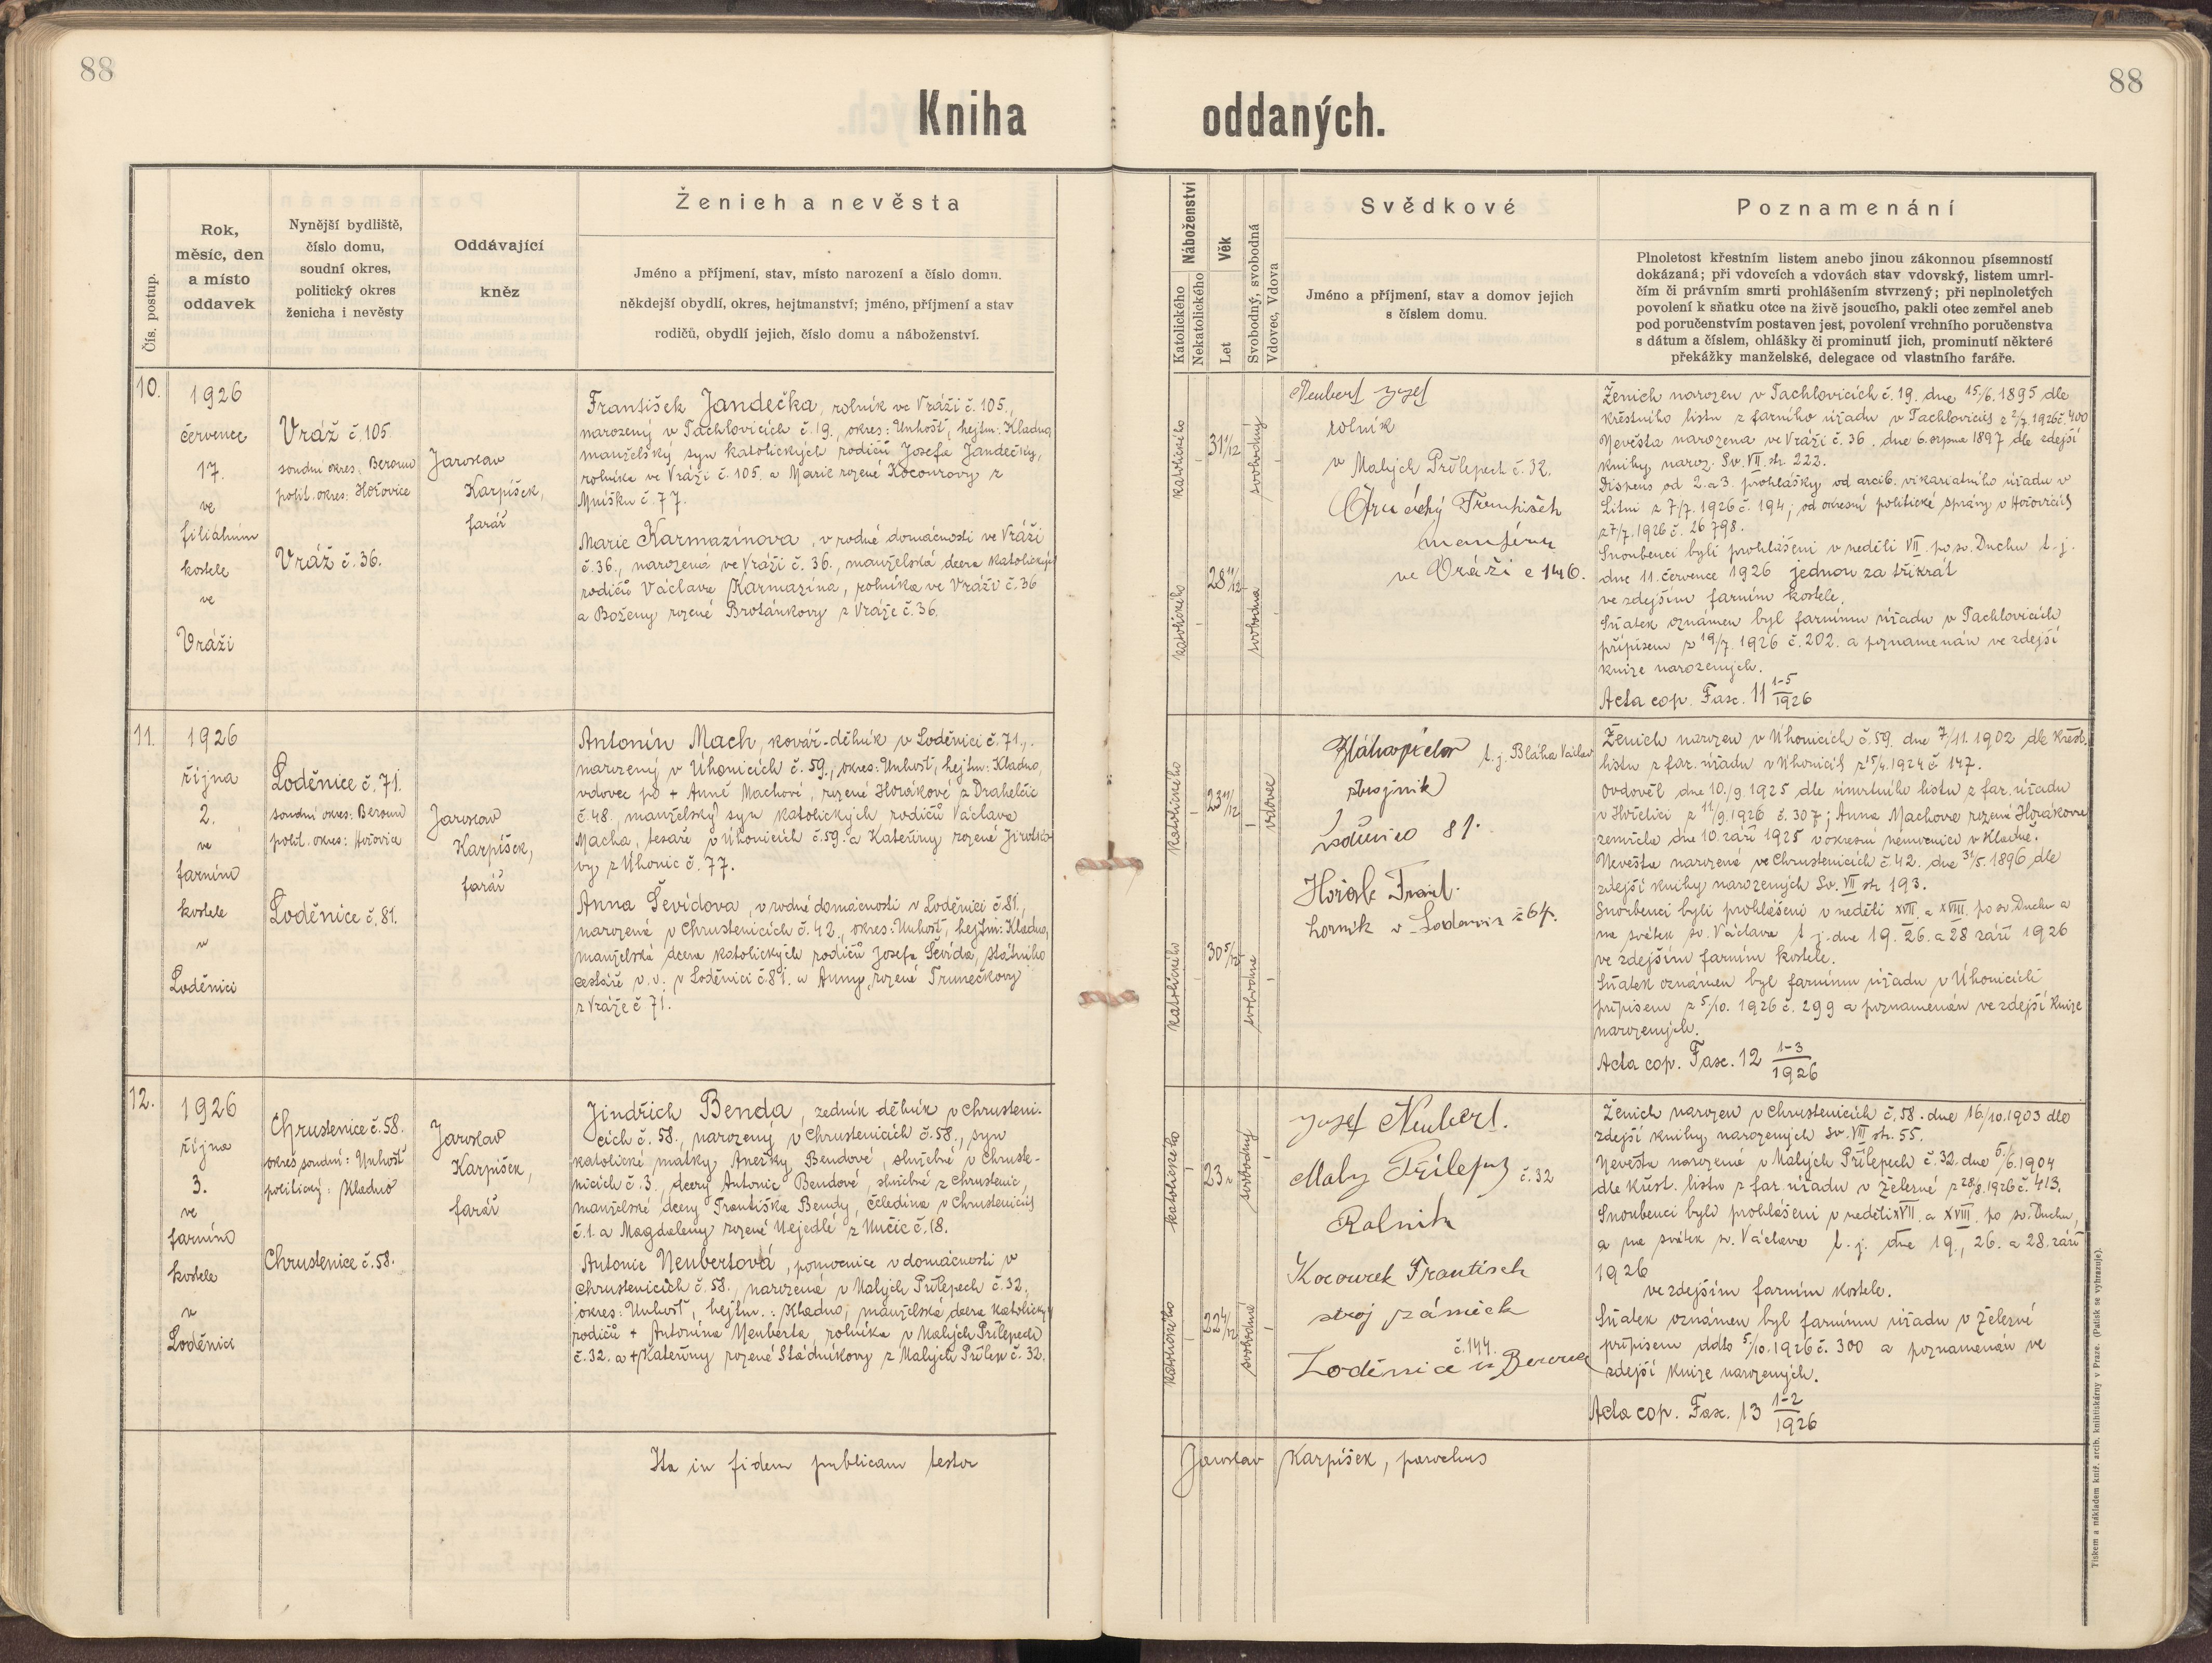 88
88
Kniha oddaných.
Čís. postup.
Rok,
měsíc, den
a místo
oddavek
Nynější bydliště,
číslo domu,
soudní okres,
politický okres
ženicha i nevěsty
Oddávající
kněz
Ženich a nevěsta
Jméno a příjmení, stav, místo narození a číslo domu.
někdejší obydlí, okres, hejtmanství; jméno, příjmení a stav
rodičů, obydlí jejich, číslo domu a náboženství.
Náboženství
Katolického
Nekatolického
Věk
Let
Svobodný, svobodná
Vdovec, Vdova
Svědkové
Jméno a příjmení, stav a domov jejich
s číslem domu.
Poznamenání
Plnoletost křestním listem anebo jinou zákonnou písemností
dokázaná; při vdovcích a vdovách stav vdovský, listem umrl-
čím či právním smrti prohlášením stvrzený; při neplnoletých
povolení k sňatku otce na živě jsoucího, pakli otec zemřel aneb
pod poručenstvím postaven jest, povolení vrchního poručenstva
s dátum a číslem, ohlášky či prominutí jich, prominutí některé
překážky manželské, delegace od vlastního faráře.
10.
1926
července
17.
ve
filiálním
kostele
ve
Vráži
Vráž č. 105
soudní okres: Beroun
polit. okres: Hořovice
Vráž č. 36.
Jaroslav
Karpíšek,
farář
František Jandečka, rolník ve Vráži č. 105.,
narozený v Tachlovicích č. 19., okres: Unhošť, hejtm: Kladno
manželský syn katolických rodičů Josefa Jandečky,
rolníka ve Vráži č. 105. a Marie rozené Kocourovy z
Mníšku č. 77.
Marie Karmazínova, v rodné domácnosti ve Vráži
č. 36., narozená ve Vráži č. 36., manželská dcera katolických
rodičů Václava Karmazína, rolníka ve Vráži č. 36
a Boženy rozené Brotánkovy z Vráže č. 36.
katolického
katolického
31 1/12
28 11/12
svobodný
svobodná
Neubert Josef
rolník
v Malých Přílepech č. 32.
František
ve Vráži č 146.
Ženich narozen v Tachlovicích č. 19. dne 15/6. 1895 dle
křestního listu z farního úřadu v Tachlovicích z 2/7. 1926 č. 400
Nevěsta narozena ve Vráži č. 36. dne 6. srpna 1897 dle zdejší
knihy naroz. Sv. VII. str. 222.
Dispens od 2. a 3. prohlášky od arcib. vikariatního úřadu v
Litni z 7/7. 1926 č. 194; od okresní politické správy v Hořovicích
z 7/7. 1926 č. 26798.
Snoubenci byli prohlášeni v neděli VII. po sv. Duchu t. j.
dne 11. července 1926 jednou za třikrát
ve zdejším farním kostele.
Sňatek oznámen byl farnímu úřadu v Tachlovicích
přípisem z 19/7. 1926 č. 202. a poznamenán ve zdejší
knize narozených.
Acta cop. Fasc. 11 1-5/1926
11.
1926
října
2.
ve
farním
kostele
v
Loděnici
Loděnice č. 71.
soudní okres: Beroun
polit. okres: Hořovice
Loděnice č. 81.
Jaroslav
Karpíšek,
farář
Antonín Mach, kovář-dělník v Loděnici č. 71.,
narozený v Úhonicích č. 59., okres: Unhošť, hejtm: Kladno,
vdovec po + Anně Machové, rozené Horákové z Drahelčic
č. 48., manželský syn katolických rodičů Václava
Macha, tesaře v Úhonicích č. 59. a Kateřiny rozené
vy z Úhonic č. 77.
Anna Ševídova, v rodné domácnosti v Loděnici č. 81.,
narozená v Chrustenicích č. 42., okres: Unhošť, hejtm: Kladno,
manželská dcera katolických rodičů Josefa Ševída, státního
cestáře v. v. v Loděnici č. 81. a Anny, rozené Trunečkovy
z Vráže č 71.
katolického
katolického
23 11/12
30 5/12
vdovec
svobodná
t. j. Bláha Václav
strojník
81.
Horák Frant.
horník v č 64.
Ženich narozen v Úhonicích č. 59. dne 7/11. 1902 dle křest.
listu z far. úřadu v Úhonicích z 15/4. 1924 č 147.
Ovdověl dne 10./9. 1925 dle úmrtního listu z far. úřadu
v Hořelici z 11/9. 1926 č. 307; Anna Machova rozená Horákova
zemřela dne 10. září 1925 v okresní nemocnici v Kladně.
Nevěsta narozená ve Chrustenicích č. 42. dne 31/5. 1896 dle
zdejší knihy narozených Sv. VII str. 193.
Snoubenci byli prohlášeni v neděli XVII. a XVIII. po sv. Duchu a
na svátek sv. Václava t. j. dne 19. 26. a 28 září 1926
ve zdejším farním kostele.
Sňatek oznámen byl farnímu úřadu v Úhonicích
přípisem z 5/10. 1926 č. 299 a poznamenán ve zdejší knize
narozených.
Acta cop. Fasc. 12 1-3/1926
12.
1926
října
3.
ve
farním
kostele
v
Loděnici
Chrustenice č. 58.
okres soudní: Unhošť
politický: Kladno
Chrustenice č. 58.
Jaroslav
Karpíšek,
farář
Jindřich Benda, zedník dělník v Chrusteni-
cích č. 58., narozený v Chrustenicích č. 58., syn
katolické matky Anežky Bendové, služebné v Chruste-
nicích č. 3, dcery Antonie Bendové, služebné z Chrustenic,
manželské dcery Františka Bendy, čeledína v Chrustenicích
č. 1. a Magdaleny rozené Nejedlé z Nučic č. 18.
Antonie Neubertová, pomocnice v domácnosti v
Chrustenicích č. 58., narozená v Malých Přílepech č. 32.,
okres: Unhošť, hejtm.: Kladno, manželská dcera katolických
rodičů + Antonína Neuberta, rolníka v Malých Přílepech
č. 32. a + Kateřiny rozené Stádníkovy z Malých Přílep č. 32.
katolického
katolického
23
22 4/12
svobodný
svobodná
Josef Neubert.
Maly Přílepy č. 32
Rolnik
Kocourek Frantisek
stroj zámick
č. 144.
Loděnice u Berouna
Ženich narozen v Chrustenicích č. 58. dne 16/10. 1903 dle
zdejší knihy narozených Sv. VIII str. 55.
Nevěsta narozená v Malých Přílepech č. 32. dne 5/6. 1904
dle křest. listu z far. úřadu v Železné z 28/8. 1926 č. 413.
Snoubenci byli prohlášeni v neděli XVII. a XVIII. po sv. Duchu,
a na svátek sv. Václava t. j. dne 19., 26. a 28. září
1926
ve zdejším farním kostele.
Sňatek oznámen byl farnímu úřadu v Železné
přípisem ddto 5/10. 1926 č. 300 a poznamenán ve
zdejší knize narozených.
Acta cop. Fasc. 13 1-2/1926
Ita in fidem publicam testor
Jaroslav Karpíšek, parochus
Tiskem a nákladem kníž. arcib. knihtiskárny v Praze. (Patisk se vyhrazuje).